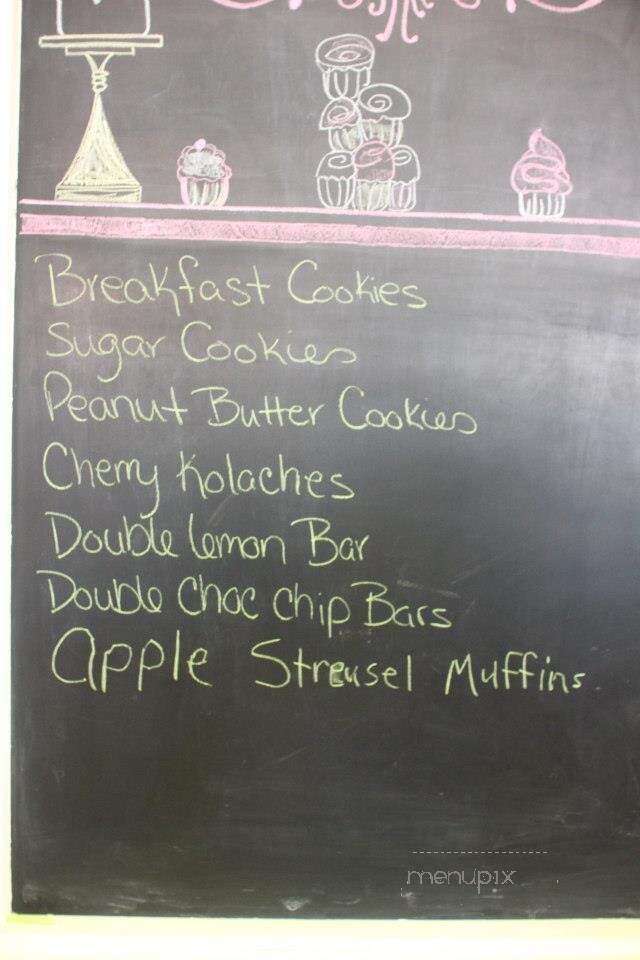 Breakfast Cookies
Sugar Cookies
Peanut Butter Cookies
Cherry Kolaches
Double Lemon Bar
Double Choc Chip Bars
Apple Streusel Muffins
menupix